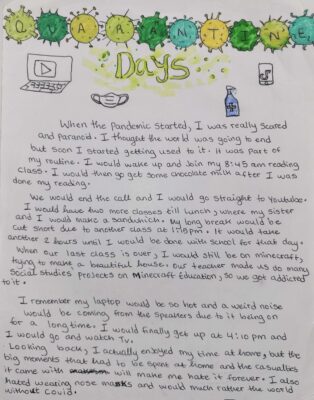 QUARANTINE
Days
When the Pandemic started, I was really scared
and paranoid. I thought the world was going to end
but soon I started getting used to it. It was part of
my routine. I would wake up and join my 8:45 am reading
class. I would then go get some chocolate milk after I was
done my reading.
We would end the call and I would go straight to Youtube.
I would have two more classes till lunch, where my sister
and I would make a sandwich. My long break would be
cut short due to another class at 1:18pm. It would take
another 2 hours until I would be done with school for that day.
When our last class is over, I would still be on minecraft,
trying to make a beautiful house. Our teacher made us do many
Social studies projects on Minecraft Education, so we got addicted
to it.
I remember my laptop would be so hot and a weird noise
would be coming from the speakers due to it being on
for a long time. I would finally get up at 4:10 pm and
I would go and watch Tv.
Looking back, I actually enjoyed my time at home, but the
big moments that had to be spent at home and the casualties
it came with will make me hate it forever. I also
hated wearing nose masks and would much rather the world
without Covid.